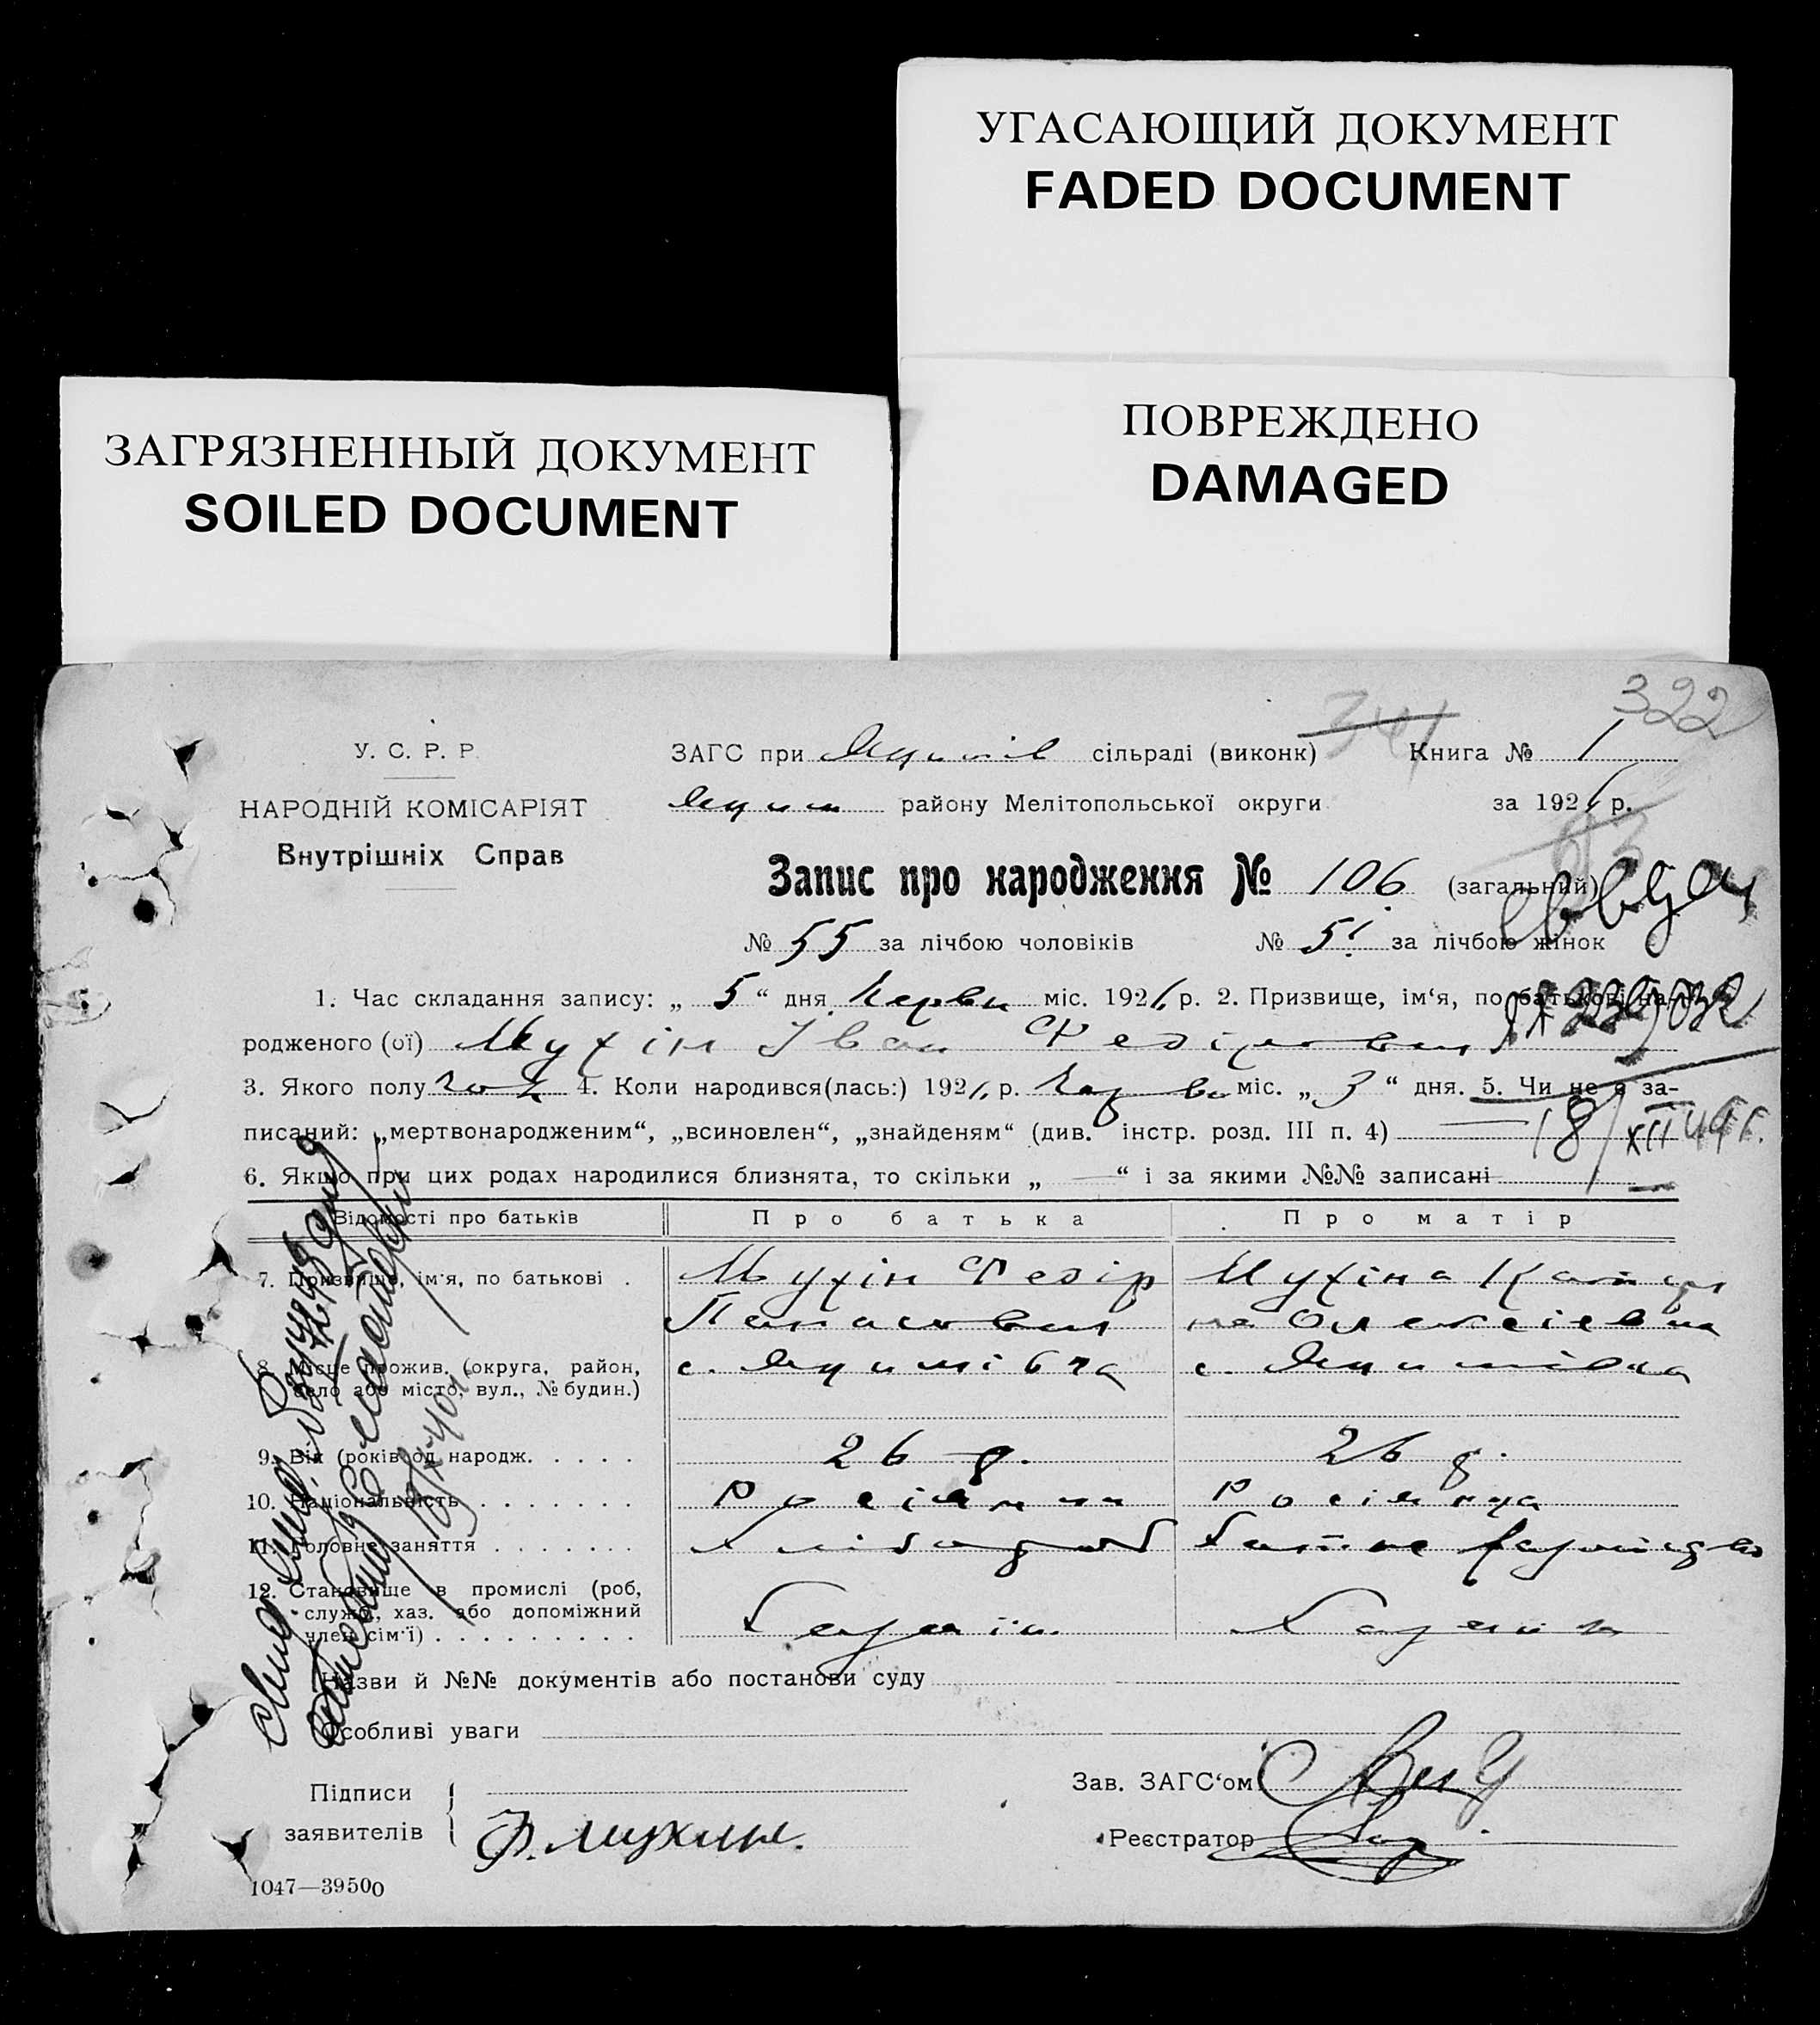 УГАСАЮЩИЙ ДОКУМЕНТ
FADED DOCUMENT
ЗАГРЯЗНЕННЫЙ ДОКУМЕНТ
SOILED DOCUMENT
ПОВРЕЖДЕНО
DAMAGED
322
341
У. С. Р. Р.
НАРОДНІЙ КОМІСАРІЯТ
Внутрішніх Справ
ЗАГС при сільраді (виконк) Книга № 1
району Мелітопольської округи за 192 р.
Запис про народження № 106 (загальний)
№ 55 за лічбою чоловіків № 51 за лічбою жінок
1. Час складання запису: „ 5 “ дня Червн міс. 192 р. 2. Призвище, ім‘я, по батькові на-
родженого (ої) Мухін Іван Федірович
3. Якого полу чол 4. Коли народився(лась:) 192 р. міс. „ 3 “ дня. 5. Чи не є за-
писаний: „мертвонародженим“, „всиновлен“, „знайденям“ (див. інстр. розд. III п. 4)
18/XII
6. Якщо при цих родах народилися близнята, то скільки „ — “ і за якими №№ записані
Відомості про батьків Про батька Про матір
7. Призвище, ім‘я, по батькові . Мухін Федір Мухіна Катери
Панасович на Олексіевна
8. Місце прожив. (округа, район, с. Якимівка с. Якимівка
село або місто, вул., № будин.)
9. Вік (років од народж. . . . . 26 р. 26 р.
10. Національність . . . . . . . Росіянин Росіянка
11. Головне заняття . . . . . . . Хлібороб Хатне
12. Становище в промислі (роб,
служб., хаз. або допоміжний
член сім‘ї) . . . . . . . . . Хазяїн
Назви й №№ документів або постанови суду
Особливі уваги
Підписи
заявителів
Ф. Мухин.
Зав. ЗАГС‘ом
Реєстратор
1047—39500